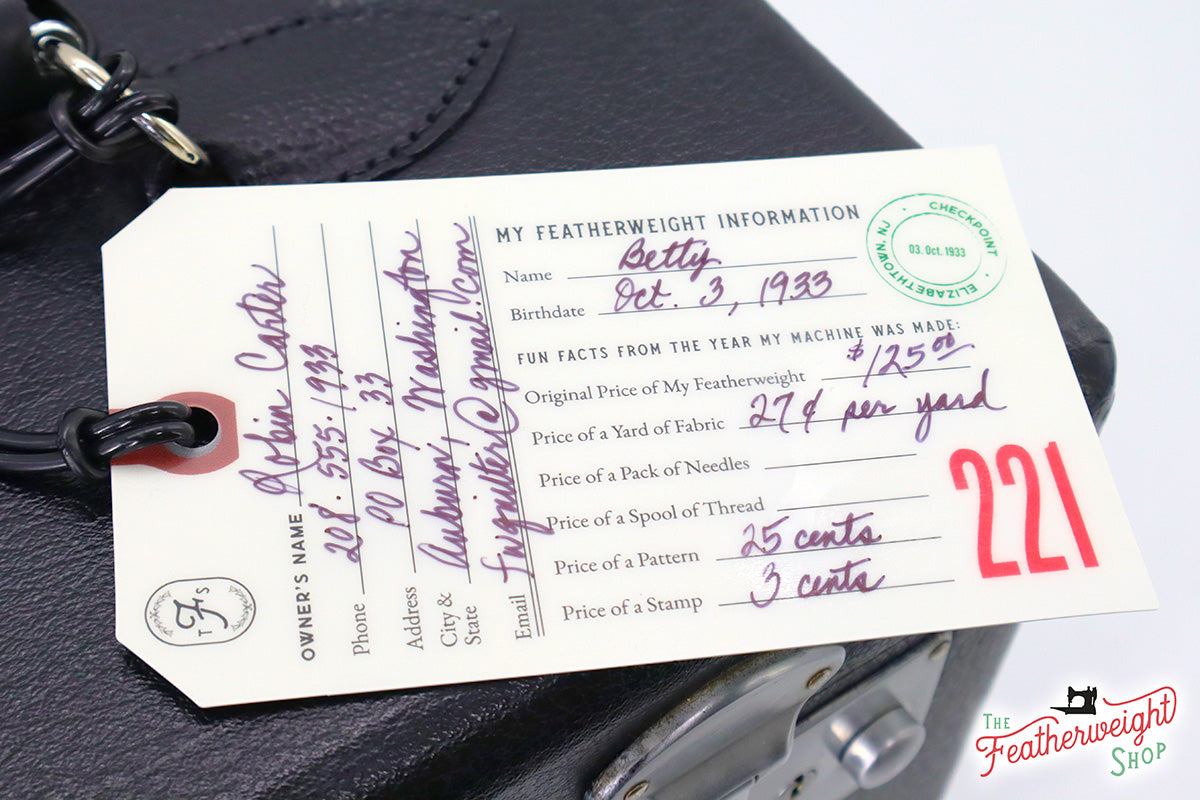 MY FEATHERWEIGHT INFORMATION
Name Betty
Birthdate Oct. 3, 1933
FUN FACTS FROM THE YEAR MY MACHINE WAS MADE:
Original Price of My Featherweight $125.00
Price of a Yard of Fabric 27¢ per yard
Price of a Pack of Needles
Price of a Spool of Thread
Price of a Pattern 25 cents
Price of a Stamp 3 cents
221
CHECKPOINT
03. Oct. 1933
ELIZABETHTOWN, NJ
OWNER'S NAME Robin Carter
Phone 208.555.1933
Address PO Box 33
City & State Auburn, Washington
Email fwquilter@gmail.com
TFS
THE
Featherweight
SHOP